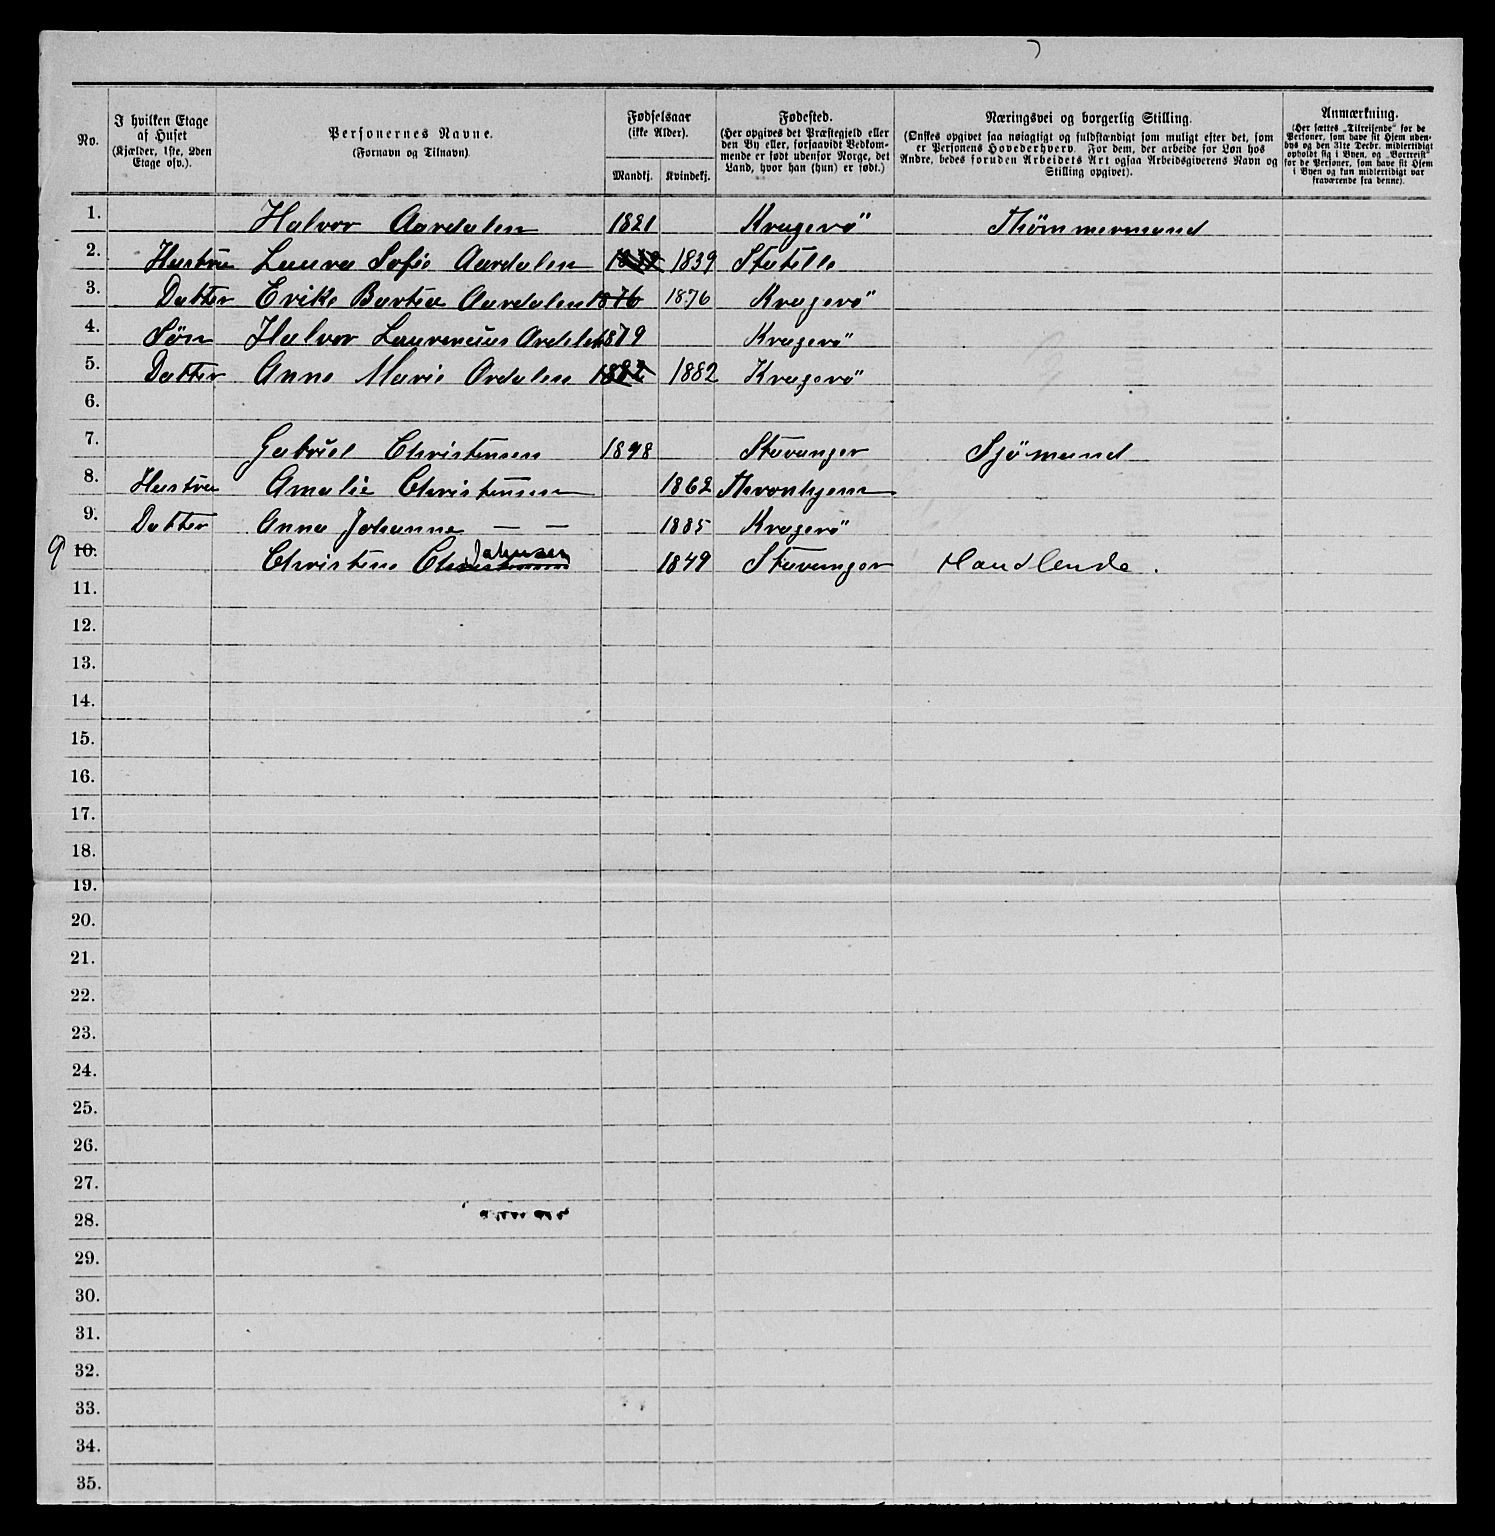 No.
I hvilken Etage af Huset (Kjælder, 1ste, 2den Etage osv.).
Personernes Navne. (Fornavn og Tilnavn)
Fødselsaar (ikke Alder).
Mandkj. Kvindekj.
Fødested. (Her opgives det Præstegjeld eller den By eller, forsaavidt Vedkommende er født udenfor Norge, det Land, hvor han (hun) er født.)
Næringsvei og borgerlig Stilling. (Ønskes opgivet saa nøiagtigt og fuldstændigt som muligt efter det, som er Personens Hovederhverv. For dem, der arbeide for Løn hos Andre, bedes foruden Arbeidets Art ogsaa Arbeidsgiverens Navn og Stilling opgivet).
Anmærkning. (Her sættes „Tilreisende“ for de Personer, som have sit Hjem udenbys og den 31te Decbr. midlertidigt opholdt sig i Byen, og „Bortreist“ for de Personer, som have sit Hjem i Byen og kun midlertidigt var fraværende fra denne).
1. Halvor Aardalen 1821 Kragerö Thömmermand
2. Hustru Laura Sofie Aardalen 1839 1839 Statelle
3. Datter Erike Bartea Aardalen 1876 1876 Kragerö
4. Søn Halvor Laurenius Ardalen 1879 Kragerö
5. Datter Anne Marie Ardalen 1882 1882 Kragerö
6.
7. Gabriel Christensen 1848 Stavanger Sjömand
8. Hustru Amalie Christensen 1862 Thronhjem
9. Datter Anna Johanne — — 1885 Kragerö
9 10. Christine Christensen Johnsen 1849 Stavanger Handlende.
11.
12.
13.
14.
15.
16.
17.
18.
19.
20.
21.
22.
23.
24.
25.
26.
27.
28.
29.
30.
31.
32.
33.
34.
35.